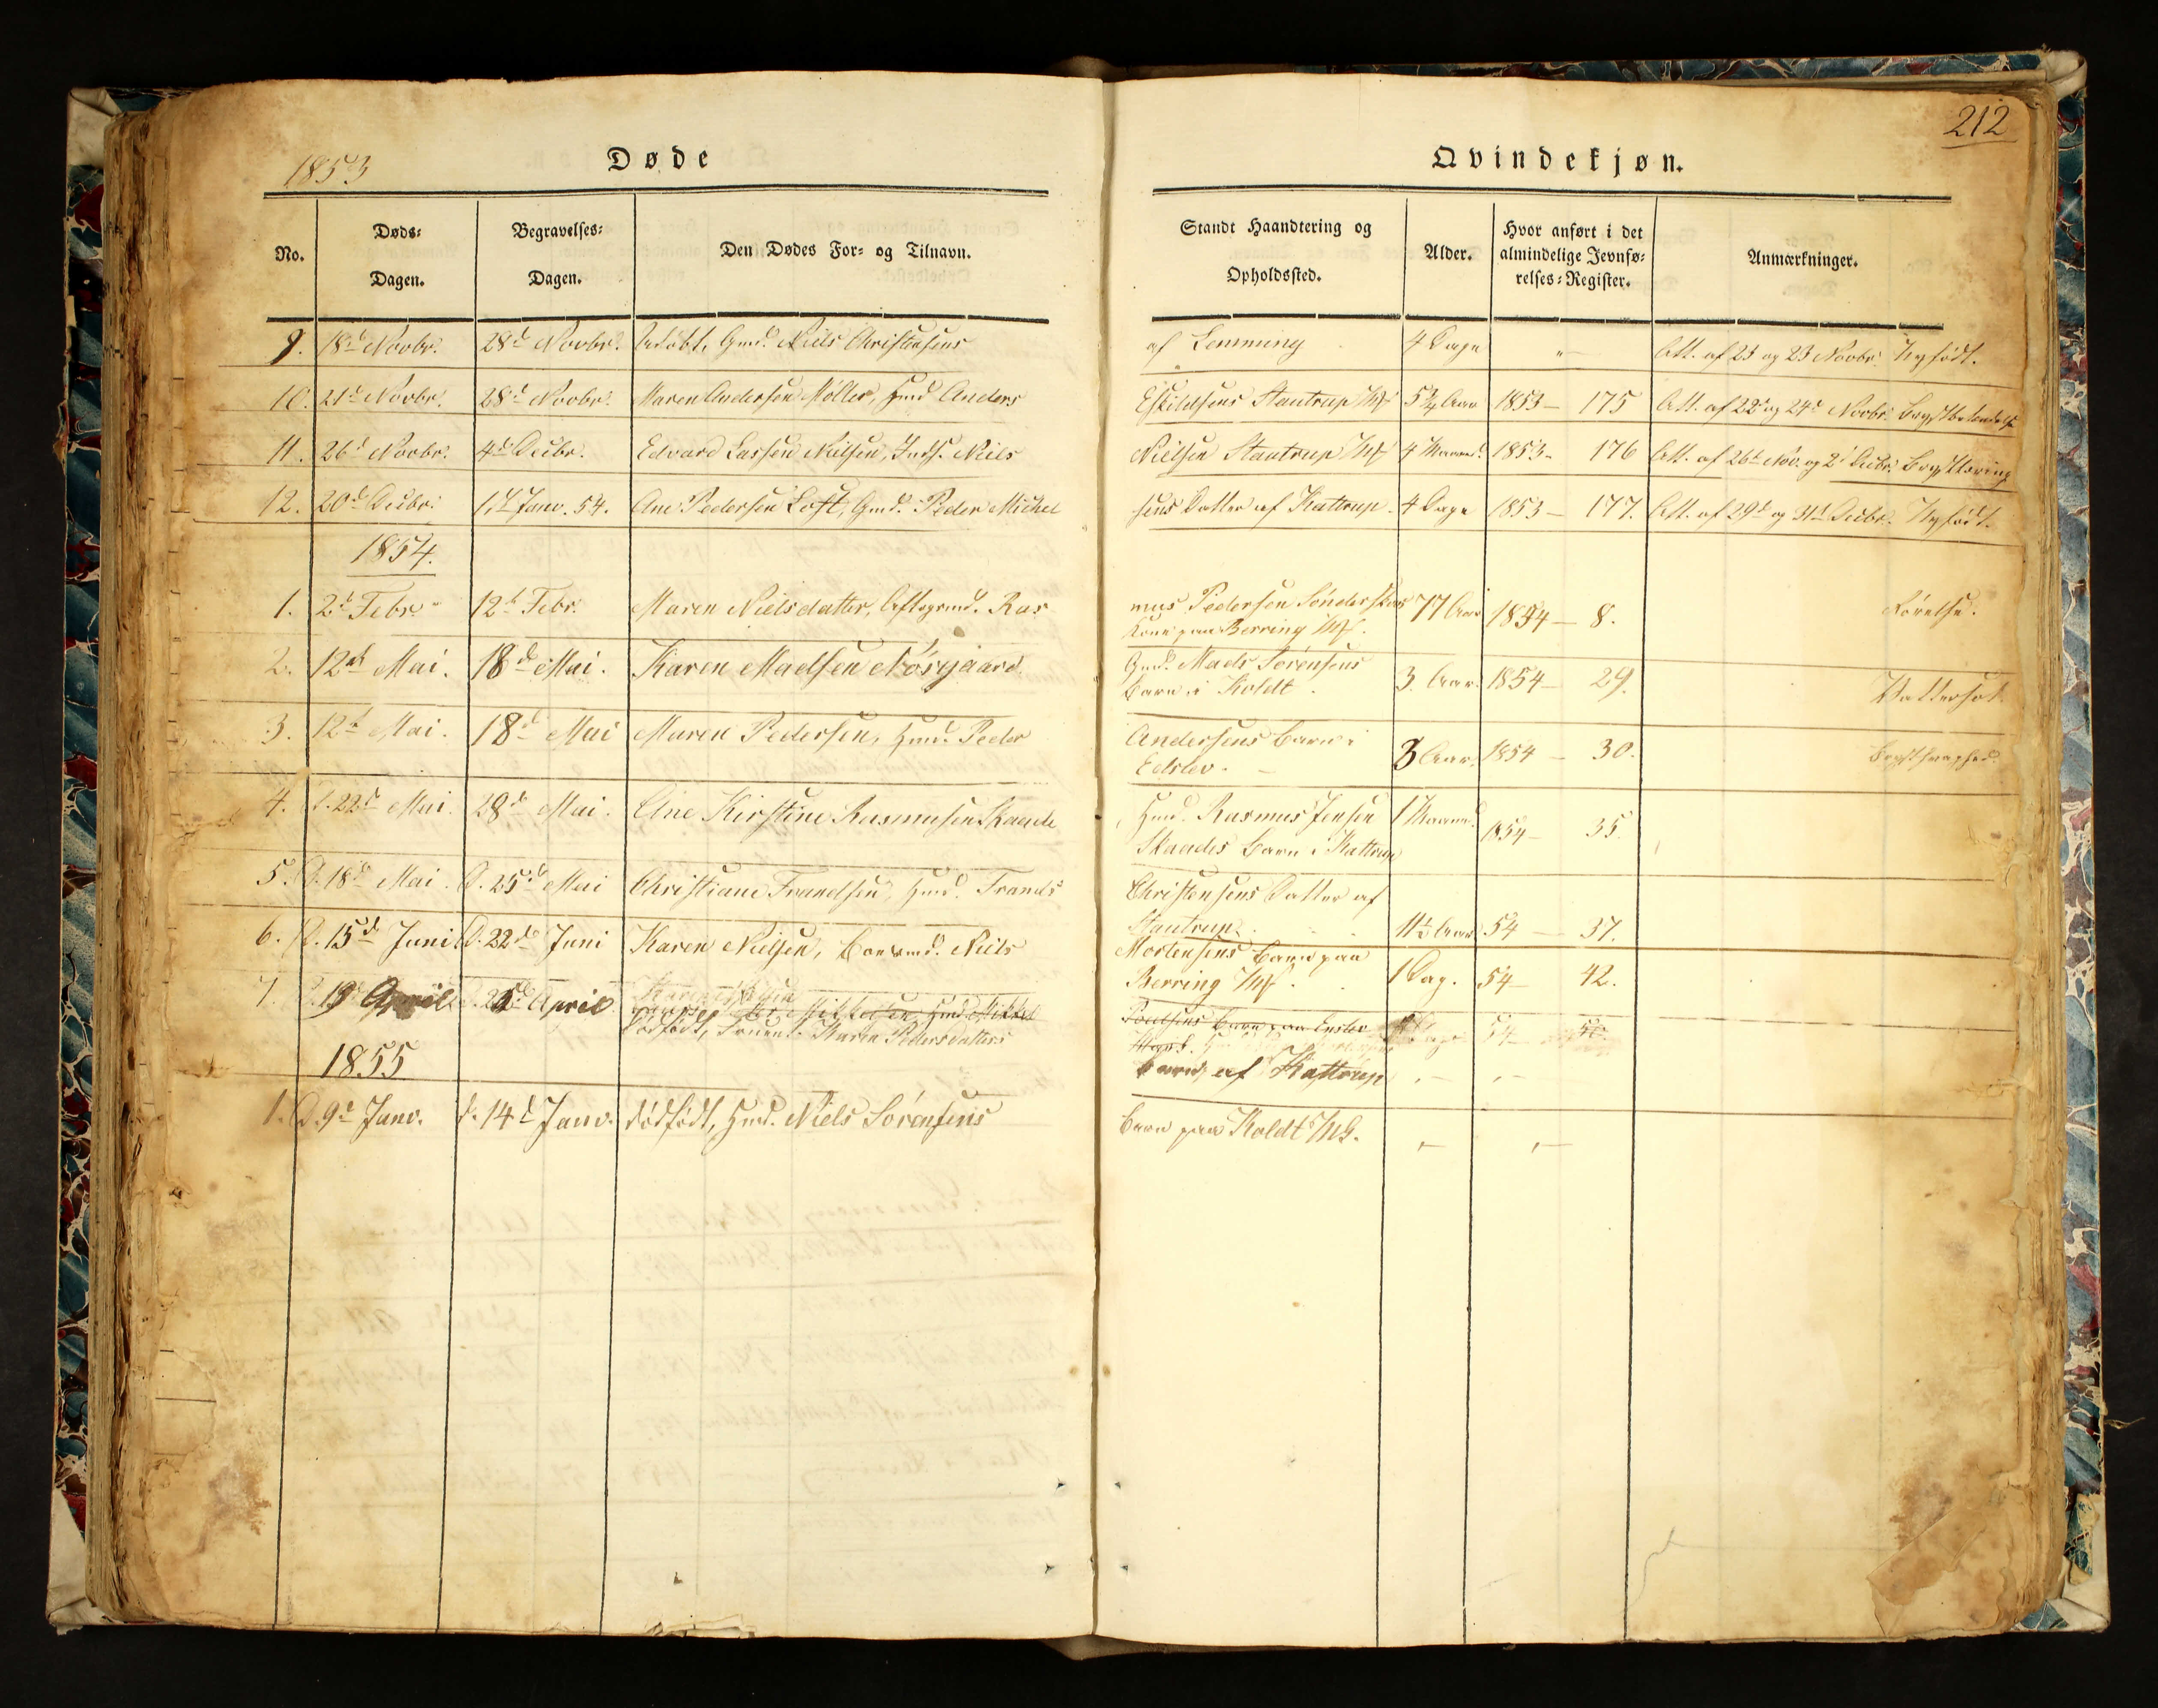 212
1853
Døde
Qvindekjøn.
No.
Døds-
Dagen.
Begravelses-
Dagen.
Den Dødes For- og Tilnavn.
Standt Haandtering og
Opholdssted.
Alder.
Hvor anført i det
almindelige Jevnfø-
relses-Register.
Anmærkninger.
9. 18d Novbr. 28d Novbr. Udöbt, Gmd. Niels Christensens af Lemming 4 Dage " Att. af 23 og 23 Novbr. Nyfödt.
10. 21d Novbr. 28d Novbr. Maren Andersen Møller, Hmd Anders Eskildsens Stautrup Mk 5¾ Aar 1853 — 175 Att. af 22d og 24d Novbr.
11. 26d Novbr. 4d Decbr. Edvard Lassen Nielsen, Inds. Niels Nielsen Stautrup Mk 4 Maaned. 1853 - 176 Att. af 26d Nov. og 2d Decbr.
12. 20d Decbr. 1d Janv. 54. Ane Pedersen Loft, Gmd. Peder Michel
sens Datter af Kattrup. 4 Dage 1853 — 177. Att. af 29d og 31d Decbr. Nyfödt.
1854.
1. 2d Febr. 12d Febr. Maren Nielsdatter, Aftægtmd. Ras
mus Pedersen Sönderskov 77 Aar 1854 — 8.
Kone paa Berring Mk.
2. 12d Mai. 18d Mai. Karen Madsen Nörgaard. Gmd. Mads Sörensens
Barn i Koldt. 3. Aar. 1854 — 29. Vattersot.
3. 12d Mai. 18d Mai Maren Pedersen, Hmd. Peder Andersens Barn i
Edslev. — 3 Aar. 1854 — 30. Brystsvaghed.
4. D. 22d Mai. 28d Mai. Ane Kirstine Rasmusen Skaade Hmd. Rasmus Jensen 1 Maaned.
Skaades Barn i Kattrup 1854 — 35.
5. D. 18d Mai. D. 25d Mai Christiane Frandsen, Hmd. Frands Christensens Datter af
Stautrup. 11½ Aar 54 — 37.
6. D. 15d Juni D. 22d Juni Karen Nielsen, Boesmd. Niels Mortensens Barn paa
Berring Mk. 1 Dag. 54 — 42.
7. D. 19d April D. 25d April Mikkelsen, Hmd. Mikkel Poulsens Barn paa Enslev 54
Dödfödt, Fruent. Karen Pedersdatters
Barn, af Kattrup
1855
1. D. 9d Janv. d. 14d Janv. dödfödt, Hmd. Niels Sörensens Barn paa Koldt Mk.